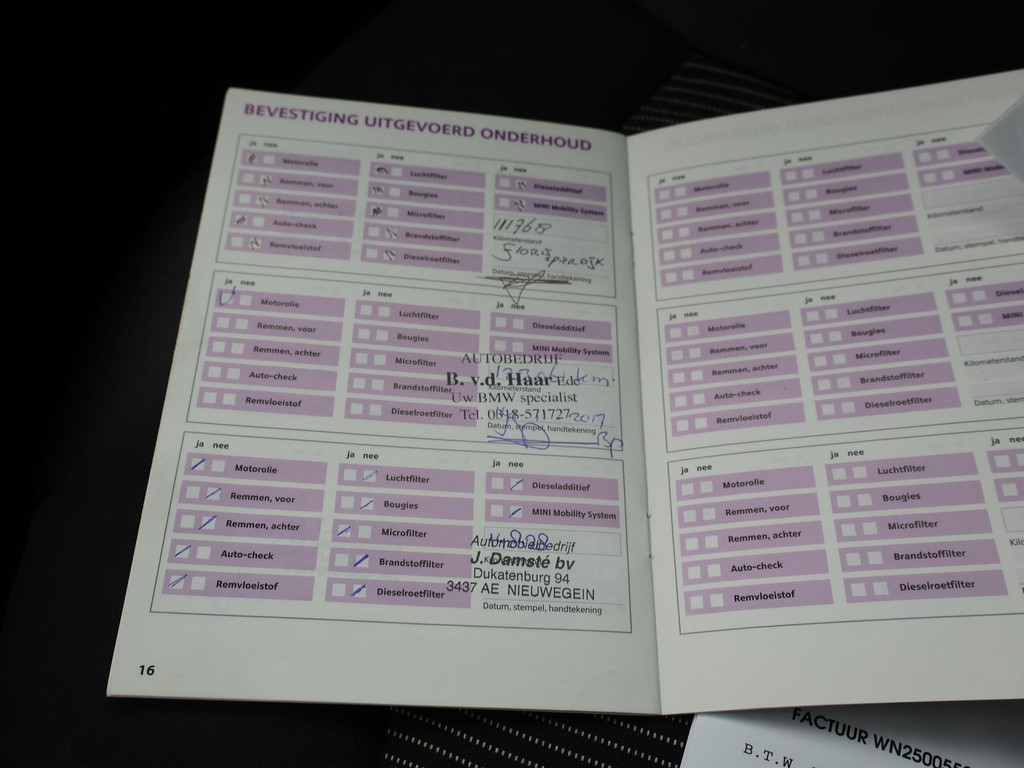 BEVESTIGING UITGEVOERD ONDERHOUD
ja nee
Motorolie
Remmen, voor
Remmen, achter
Auto-check
Remvloeistof
ja nee
Luchtfilter
Bougies
Microfilter
Brandstoffilter
Dieselroetfilter
ja nee
Dieseladditief
MINI Mobility System
111768
Kilometerstand
Datum, stempel, handtekening
ja nee
Motorolie
Remmen, voor
Remmen, achter
Auto-check
Remvloeistof
ja nee
Luchtfilter
Bougies
Microfilter
Brandstoffilter
Dieselroetfilter
ja nee
Dieseladditief
MINI Mobility System
AUTOBEDRIJF
B. v.d. Haar Ede
Kilometerstand
Uw BMW specialist
Tel. 0318-571727
2017
Datum, stempel, handtekening
ja nee
Motorolie
Remmen, voor
Remmen, achter
Auto-check
Remvloeistof
ja nee
Luchtfilter
Bougies
Microfilter
Brandstoffilter
Dieselroetfilter
ja nee
Dieseladditief
MINI Mobility System
Automobielbedrijf
J. Damsté bv
Dukatenburg 94
3437 AE NIEUWEGEIN
Datum, stempel, handtekening
16
ja nee
Motorolie
Remmen, voor
Remmen, achter
Auto-check
Remvloeistof
ja nee
Luchtfilter
Bougies
Microfilter
Brandstoffilter
Dieselroetfilter
ja nee
MINI
Kilometerstand
Datum, stempel, handtekening
ja nee
Motorolie
Remmen, voor
Remmen, achter
Auto-check
Remvloeistof
ja nee
Luchtfilter
Bougies
Microfilter
Brandstoffilter
Dieselroetfilter
ja nee
MINI
Kilometerstand
Datum, stem
ja nee
Motorolie
Remmen, voor
Remmen, achter
Auto-check
Remvloeistof
ja nee
Luchtfilter
Bougies
Microfilter
Brandstoffilter
Dieselroetfilter
ja nee
FACTUUR WN250055
B.T.W.